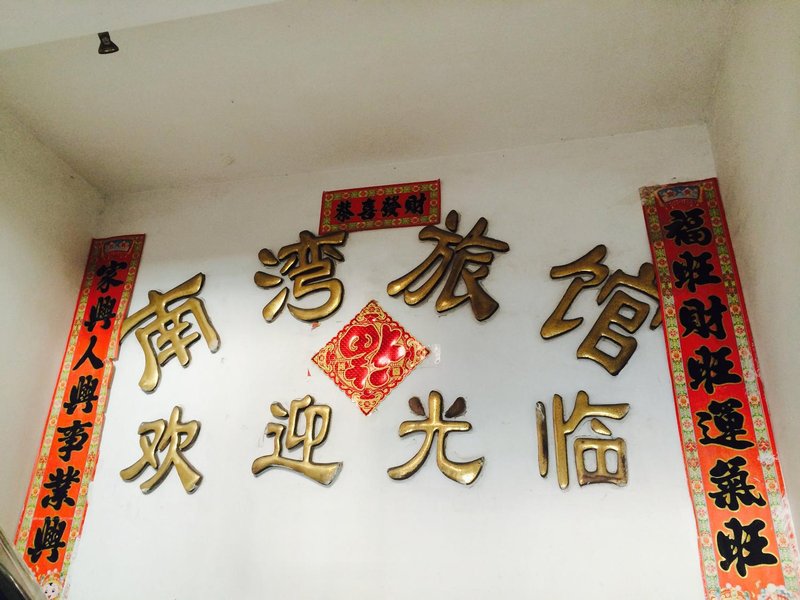 恭喜發財
南湾旅馆
福
欢迎光临
福旺财旺運氣旺
家興人興事業興